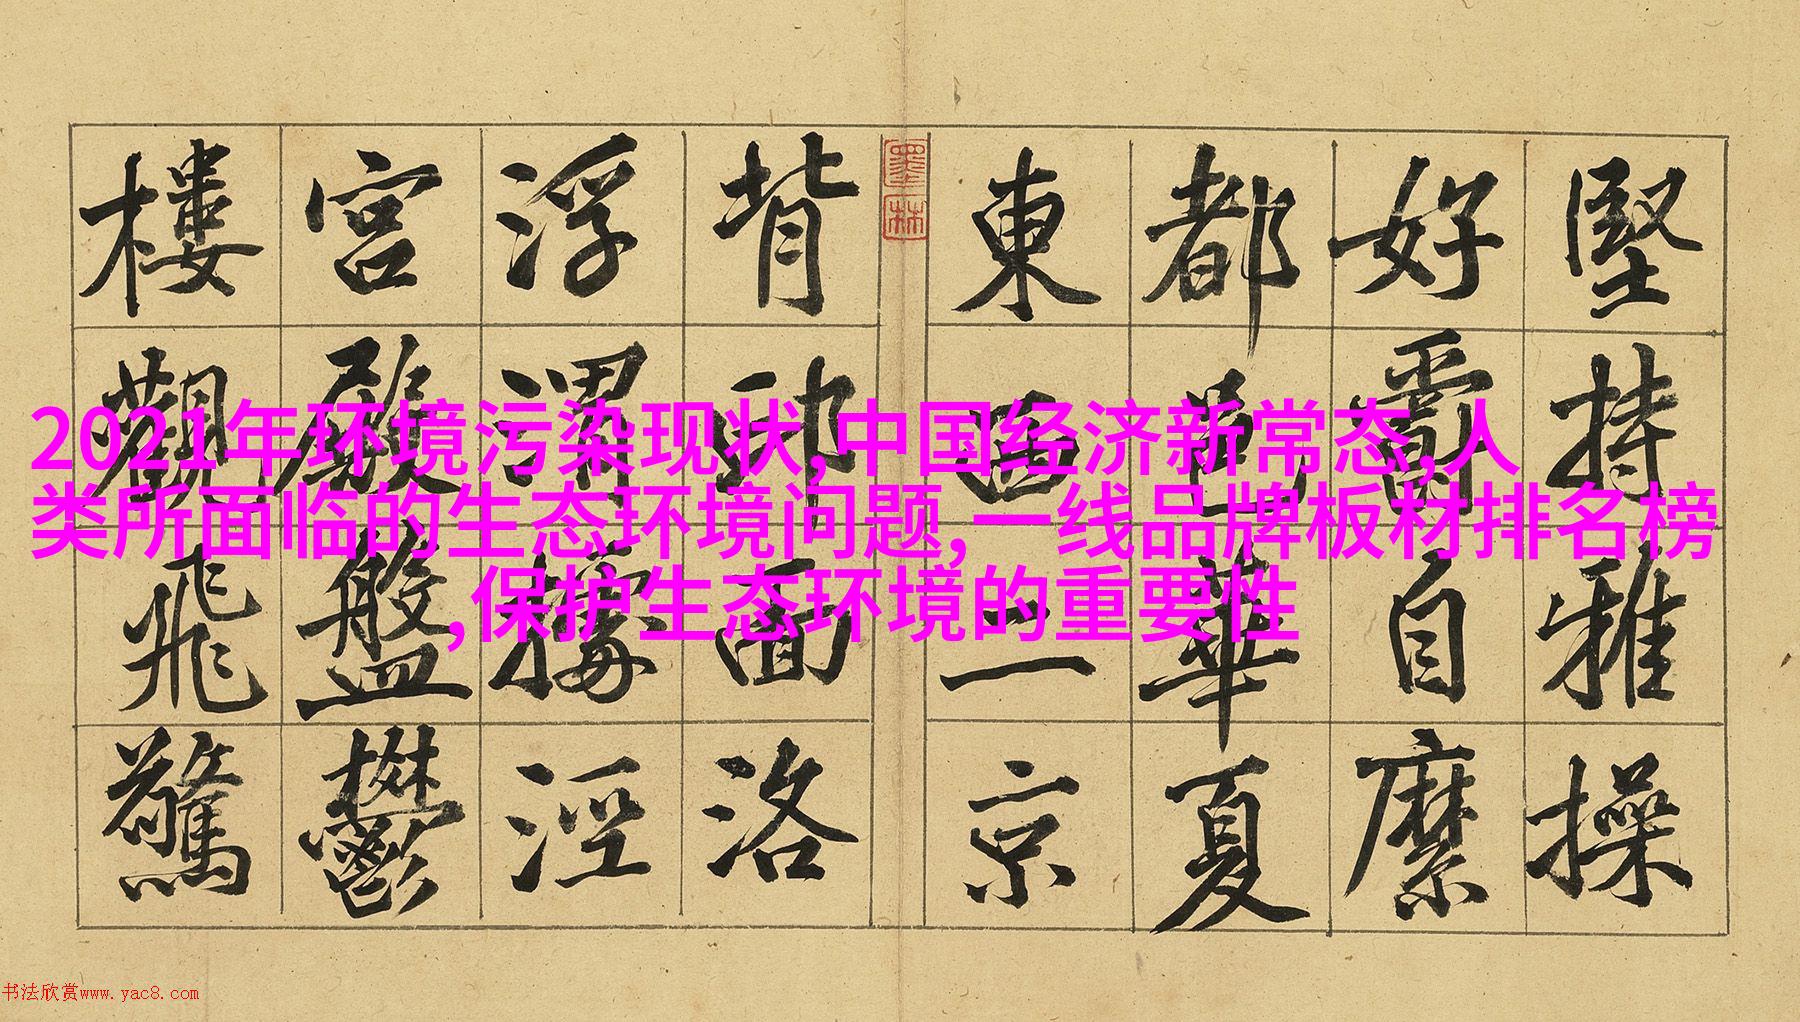 堅持雅操
好爵自縻
都邑華夏
東西二京
墨林
背邙面洛
浮渭據涇
宮殿盤鬱
樓觀飛驚
2021年环境污染现状,中国经济新常态,人
类所面临的生态环境问题,一线品牌板材排名榜
,保护生态环境的重要性
书法欣赏www.yac8.com